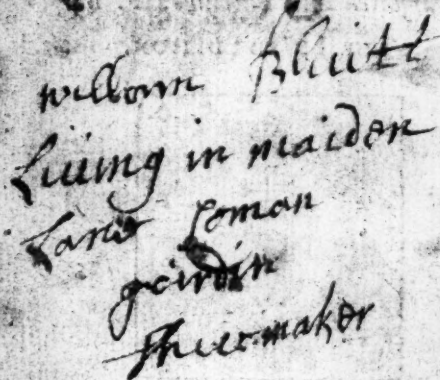 willorm Bluitt
Liuing in maiden
Lane Coman
gairdin
Shuemaker